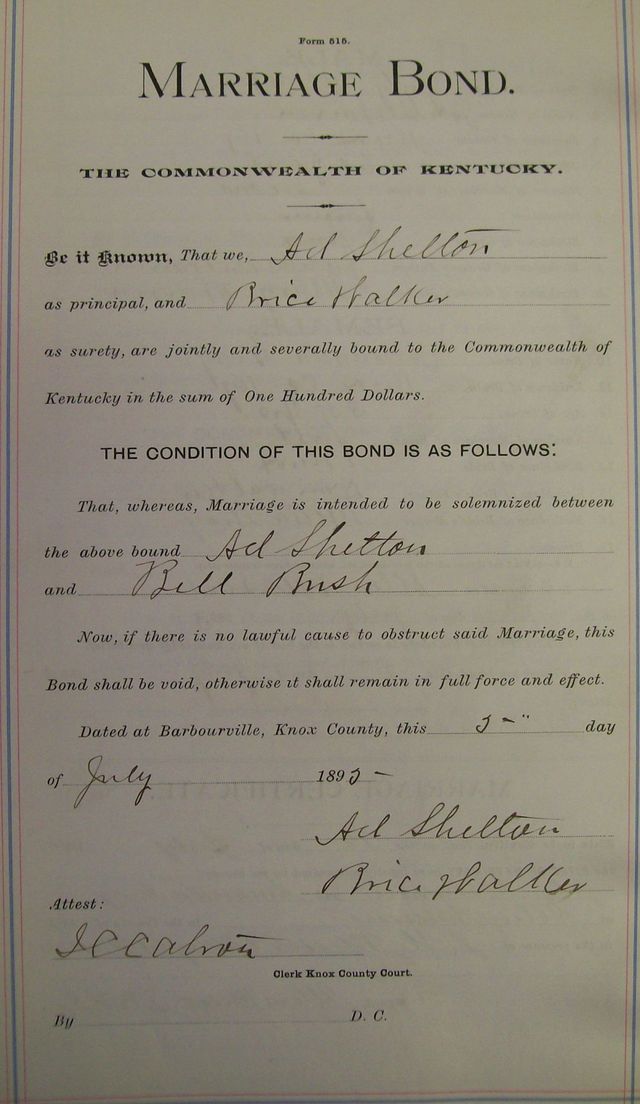 Form 515.
MARRIAGE BOND.
THE COMMONWEALTH OF KENTUCKY.
Be it Known, That we, Ad Shelton
as principal, and Brice Walker
as surety, are jointly and severally bound to the Commonwealth of
Kentucky in the sum of One Hundred Dollars.
THE CONDITION OF THIS BOND IS AS FOLLOWS:
That, whereas, Marriage is intended to be solemnized between
the above bound Ad Shelton
and Bell Bush
Now, if there is no lawful cause to obstruct said Marriage, this
Bond shall be void, otherwise it shall remain in full force and effect.
Dated at Barbourville, Knox County, this 5" day
of July 1895
Ad Shelton
Brice Walker
Attest:
Clerk Knox County Court.
By D. C.